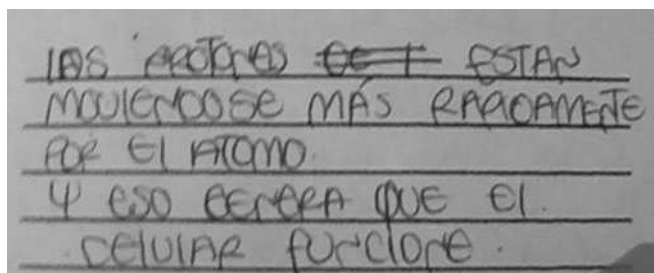 LOS PROTONES ESTAN
MOVIENDOSE MÁS RAPIDAMENTE
POR El ATOMO.
Y ESO GENERA QUE El.
CELULAR FUNCIONE.